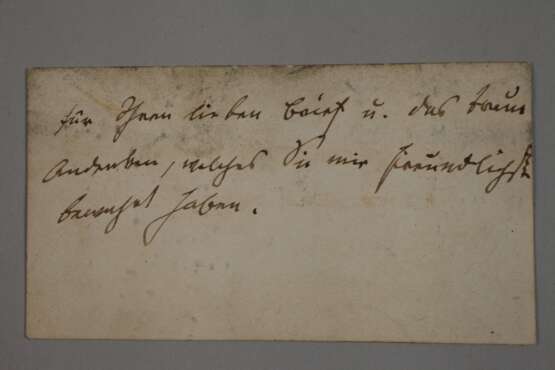 für Ihren lieben Brief u. das treue
Andenken, welches Sie mir freundlichst
bewahrt haben.